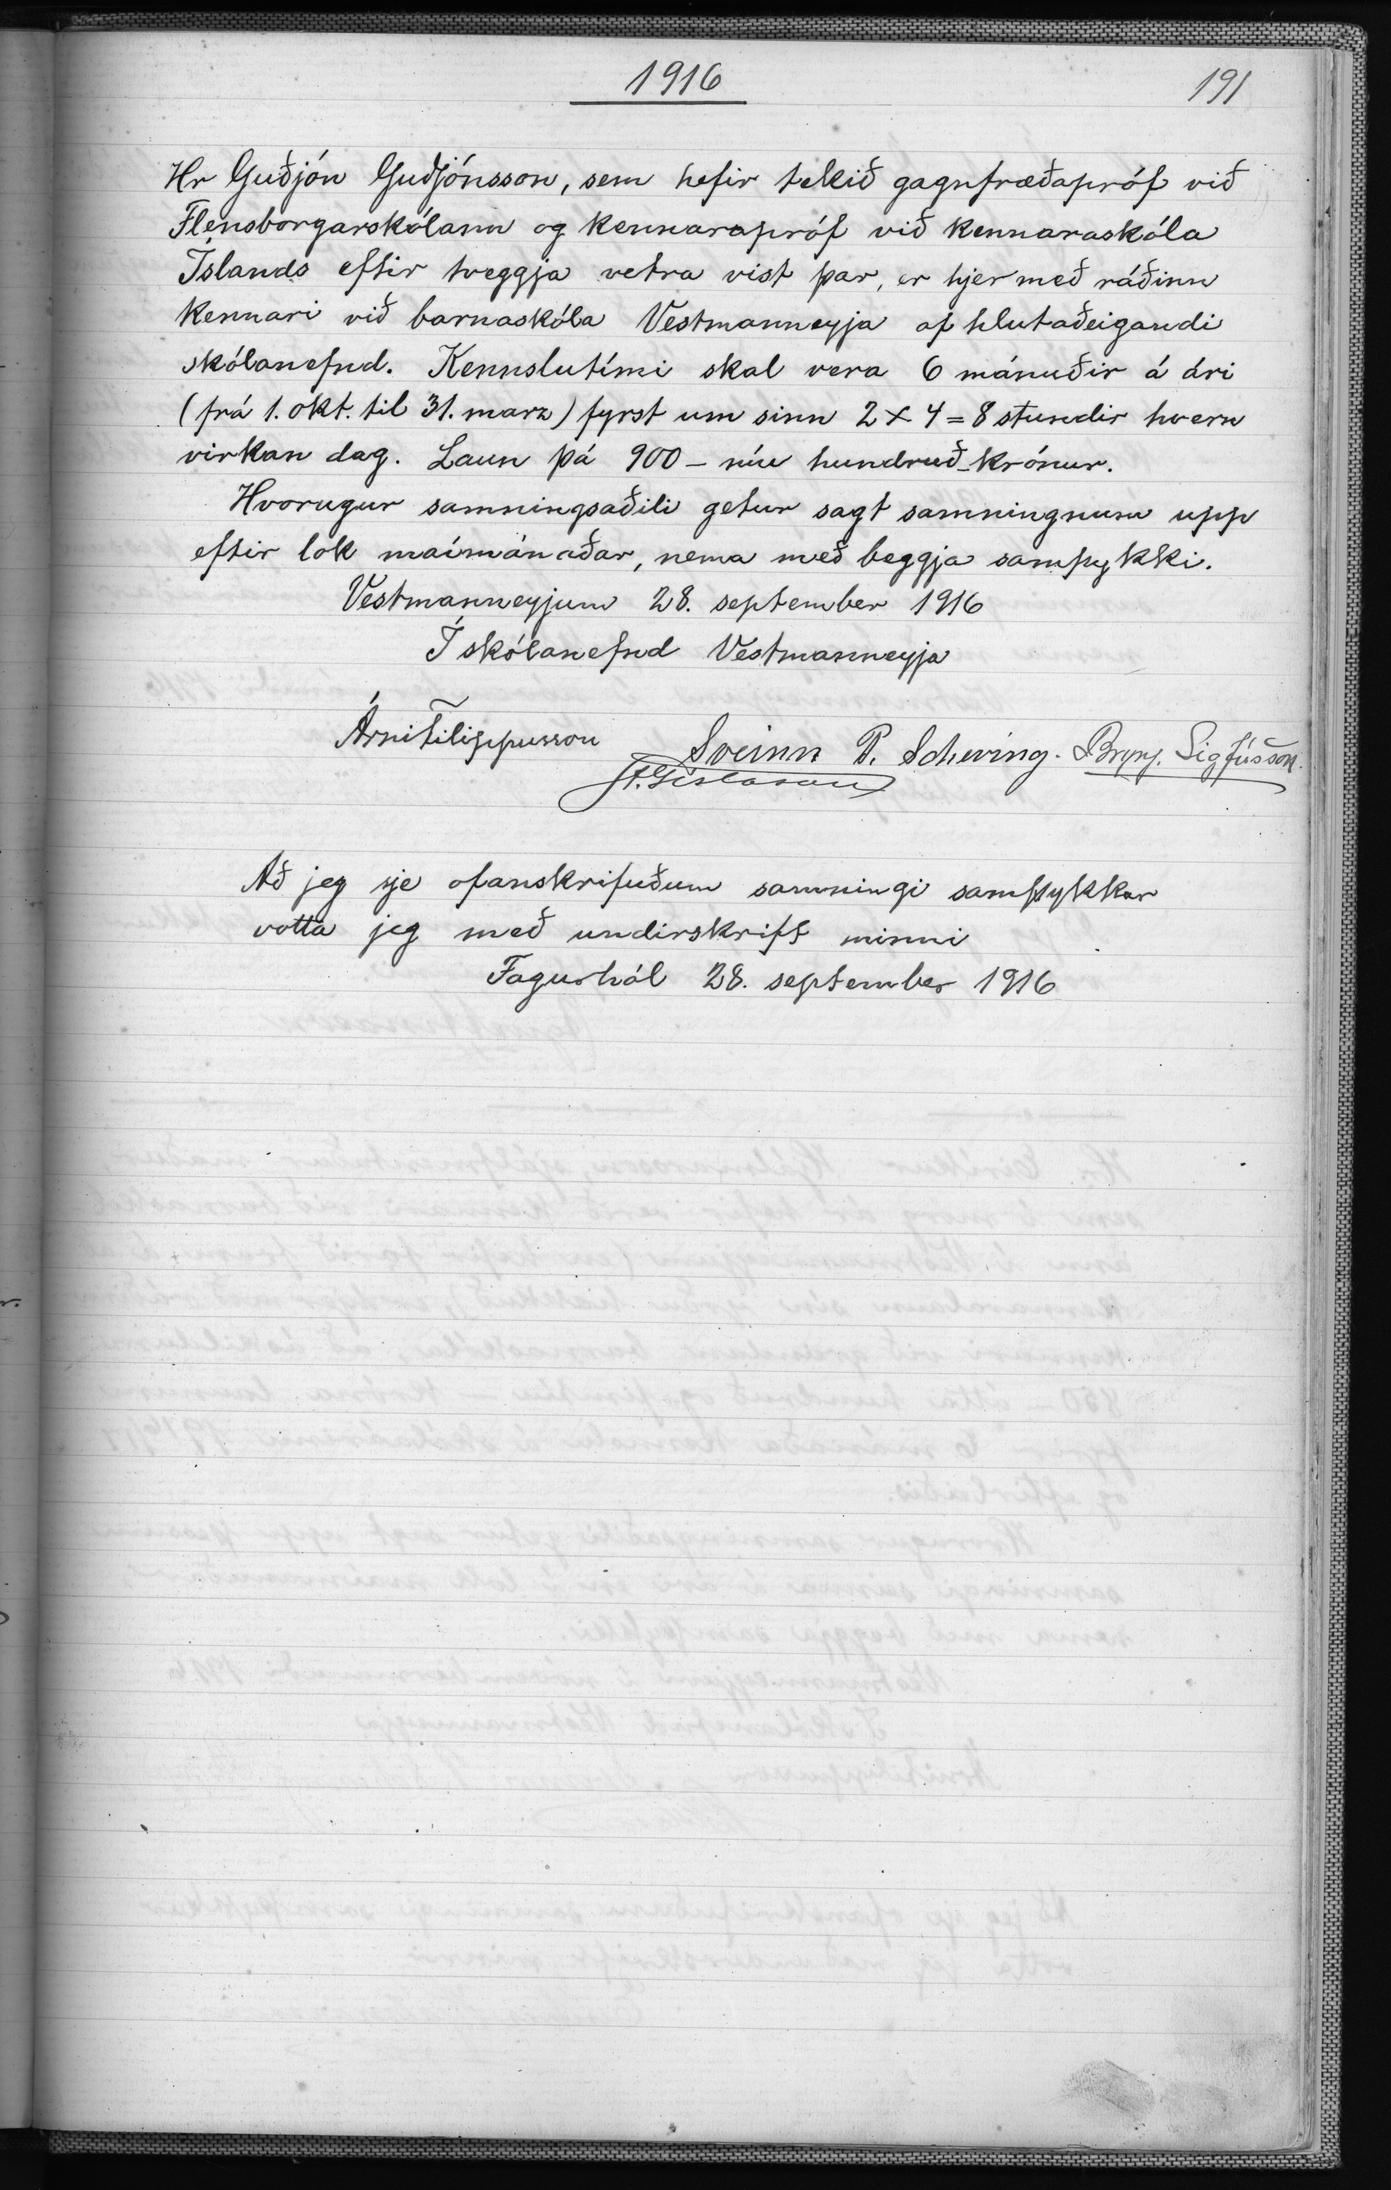 1916
191
Hr Guðjón Guðjónsson, sem hefir tekið gagnfræðapróf við
Flensborgarskólann og kennarapróf við kennaraskóla
Íslands eftir tveggja vetra vist þar, er hjer með ráðinn
kennari við barnaskóla Vestmanneyja af hlutaðeigandi
skólanefnd. Kennslutími skal vera 6 mánuðir á ári
(frá 1. okt. til 31. marz) fyrst um sinn 2 x 4 = 8 stundir hvern
virkan dag. Laun þá 900 – níu hundruð – krónur.
Hvorugur samningsaðili getur sagt samningnum upp
eftir lok maímánaðar, nema með beggja samþykki.
Vestmanneyjum 28. september 1916
Í skólanefnd Vestmanneyja
Árni Filippusson Sveinn P. Scheving. Brynj. Sigfússon.
J. Gíslason
Að jeg sje ofanskrifuðum samningi samþykkur
votta jeg með undirskrift minni
Fagurhól 28. september 1916